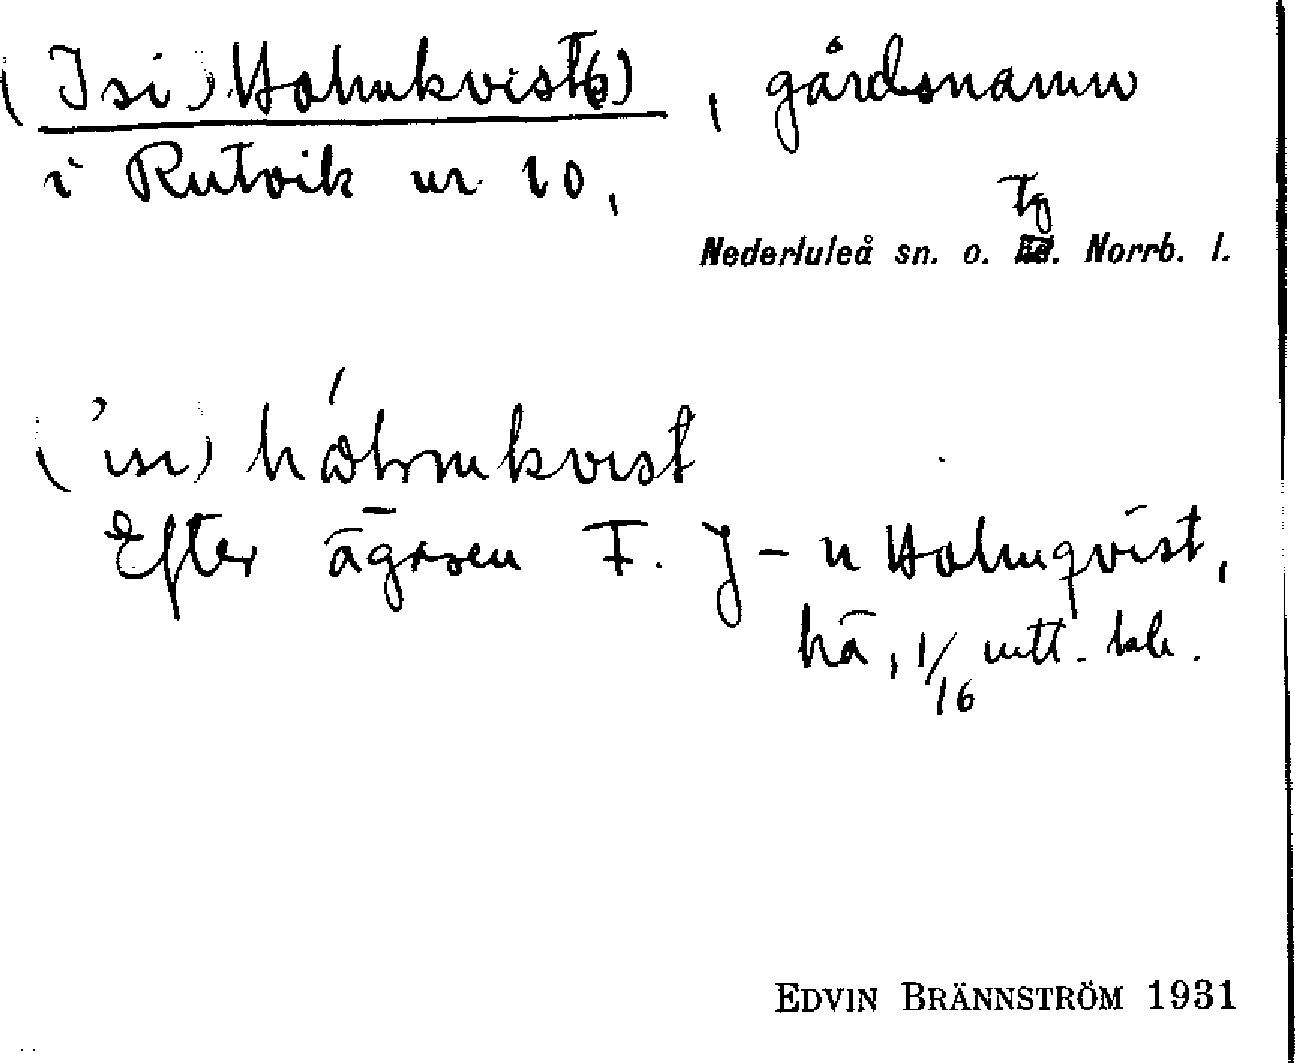 (Isi) Holmkvist(s), gårdsnamn
i Rutvik nr 10,
tg
Nederluleå sn. o. Norrb. l.
('isi) hólmkvist
Efter ägaren F. J-n Holmqvist,
hä, 1/16 mtl.
EDVIN BRÄNNSTRÖM 1931